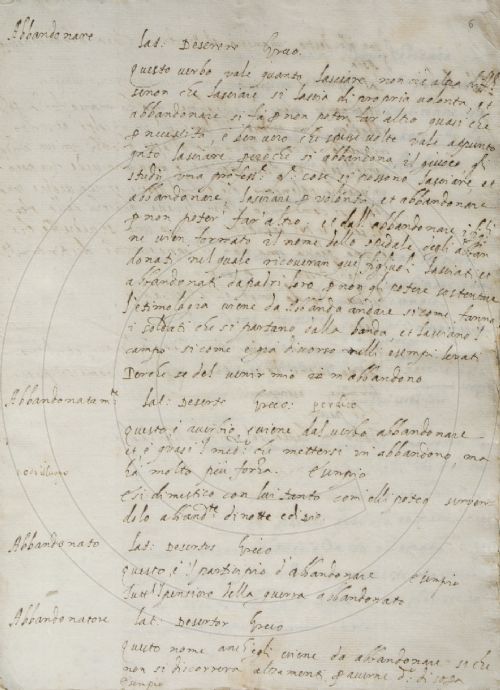 6
Abbandonare
lat: Deserere Greco.
questo verbo vale quanto lasciare, non v'è altra
senon che lasciare si lascia di propria volontà, et
abbandonare si fà p non poter far altro quasi che
p necessità, è ben vero che spesse volte vale appunto
lasciare perche si abbandona il giuoco gl
studii una profess: et cose si possono lasciare et
abbandonare, lasciare p volontà et abbandonare
p non poter far altro. et dall'abbandonare
ne vien formato il nome dello spedale degli abban
donati nel quale ricoveran que figliuoli lasciati et
abbandonati da padri loro p non gl potere sostentare
l'etimologia viene da andare si come fanno
i soldati che si partano dalla banda, et lasciano il
campo si come è più diverso nelli esempi
Perche se del venir mio m'abbandono
Abbandonatam.te
lat: Deserte Greco:
questo è averbio, e viene dal verbo abbandonare
et è quasi il med: che mettersi in abbandono, ma
ha molto più forza. esempio
E si dimestico con lui tanto com'elli potea
dolo abband.te di notte e di dio.
Abbandonato
lat: Desertus Greco
questo è il participio d'abbandonare esempio
Tutt'l pensiero della guerra abbandonato
Abbandonatore
lat: Desertor Greco
questo nome anch'egli viene da abbandonare si che
non si discorrerà altramenti p averne di sopra
esempio